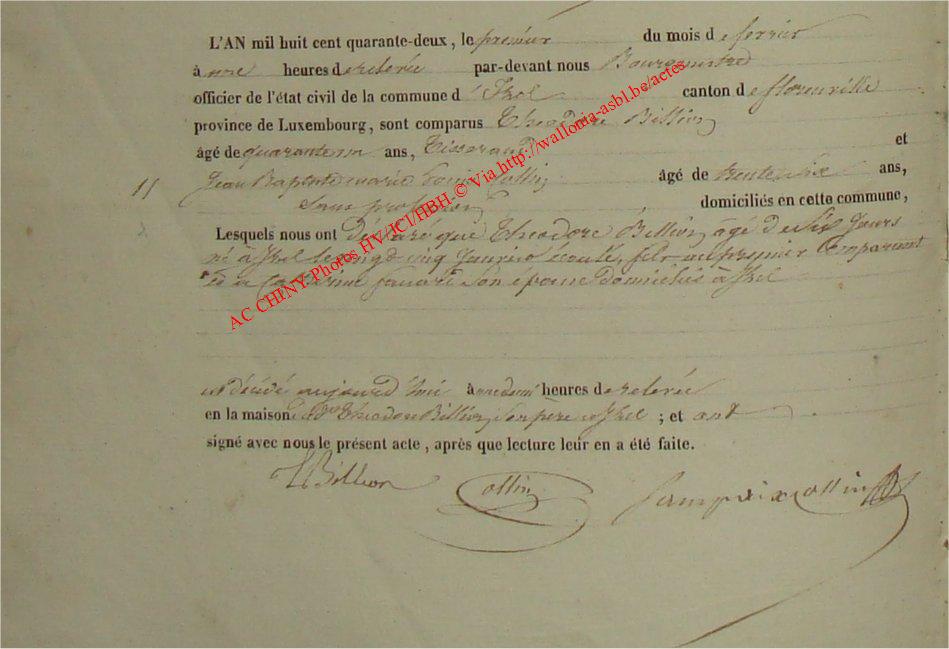 L'AN mil huit cent quarante-deux, le premier du mois de fevrier
à une heures de relevée par-devant nous Bourgmestre
officier de l'état civil de la commune d'Izel canton de florenville
province de Luxembourg, sont comparus Theodore Billion
âgé de quarante un ans, Tisserand et
11 Jean Baptiste marie Collin âgé de trente six ans,
Sans profession domiciliés en cette commune,
Lesquels nous ont déclaré que Theodore Billion, agé de Six Jours
né à Izel le vingt cinq Janvier écoulé, fils au premier Comparant
et à Catherine Son épouse domiciliés à Izel
est décédé aujourd'hui à une demi heures de relevée
en la maison de Theodore Billion, Son père à Izel ; et ont
signé avec nous le présent acte, après que lecture leur en a été faite.
Billion Collin Collin
AC CHINY-Photos HV/ICI/HBH. © Via http://wallonia-asbl.be/actes